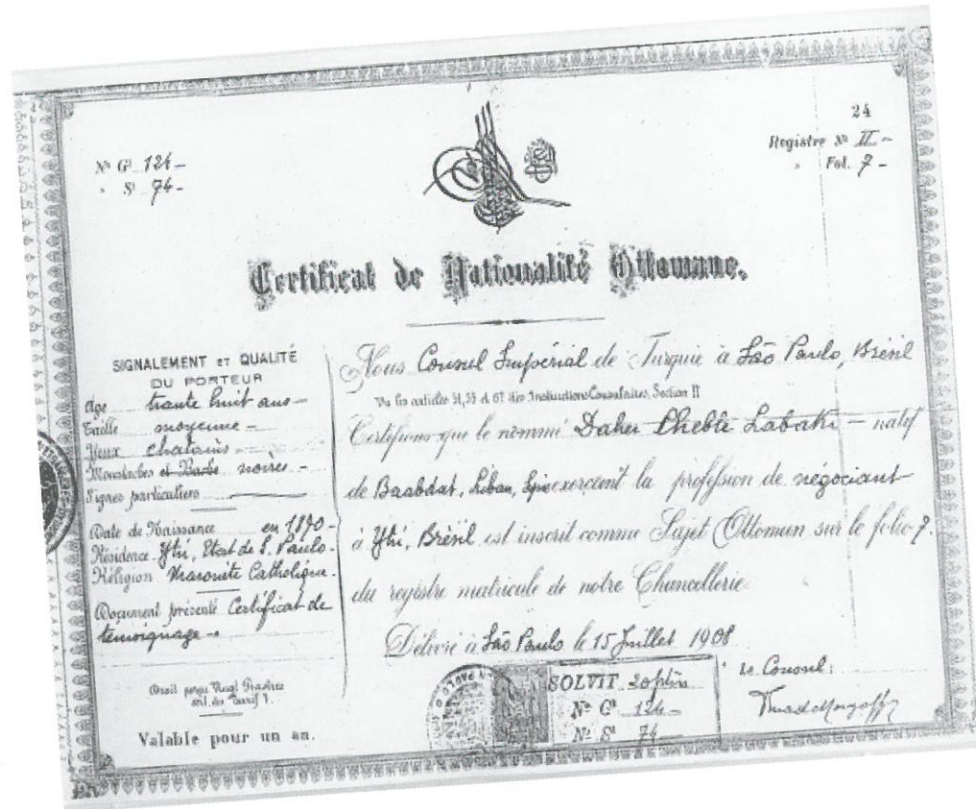 Nº Gl 124 –
" Sl 74 –
24
Registre Nº II –
" Fol. 7 –
Certificat de Nationalité Ottomane.
SIGNALEMENT ET QUALITÉ
DU PORTEUR
Age trante huit ans –
Taille moyenne –
Yeux chatains –
Moustaches et Barbe noires –
Signes particuliers
Date de Naissance en 1870 –
Résidence Ythi, Etat de S. Paulo –
Réligion Maronite Catholique.
Document présenté Certificat de
temoignage –
Droit perçu Vingt Piastres
art. du Tarif 1.
Valable pour un an.
Nous Consul Impérial de Turquie à São Paulo, Brésil
Vu les articles 31, 35 et 61 des Instructions Consulaires, Section II
Certifions que le nommé Daher Chebli Labaki – natif
de Baabdat, Liban, exercent la profession de négociant
à Ythi, Brésil est inscrit comme Sujet Ottoman sur le folio 7.
du registre matricule de notre Chancellerie
Délivré à São Paulo le 15 Juillet 1908
SOLVIT 20
Nº Gl 124 –
Nº Sl 74 –
Le Consul: